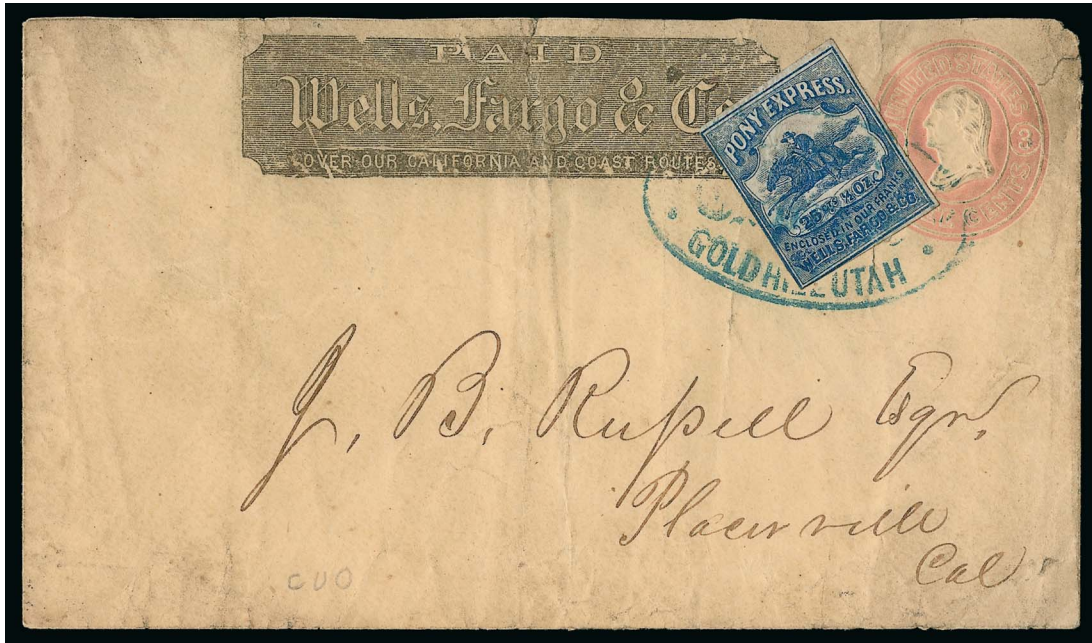 PAID
Wells, Fargo & Co
OVER OUR CALIFORNIA AND COAST ROUTES
PONY EXPRESS.
25 CTS ½ OZ.
ENCLOSED IN OUR FRANKS
WELLS, FARGO & CO.
UNITED STATES
3
CENTS
GOLD HILL UTAH
J. B. Russell Esqr.
Placerville
Cal
CUO